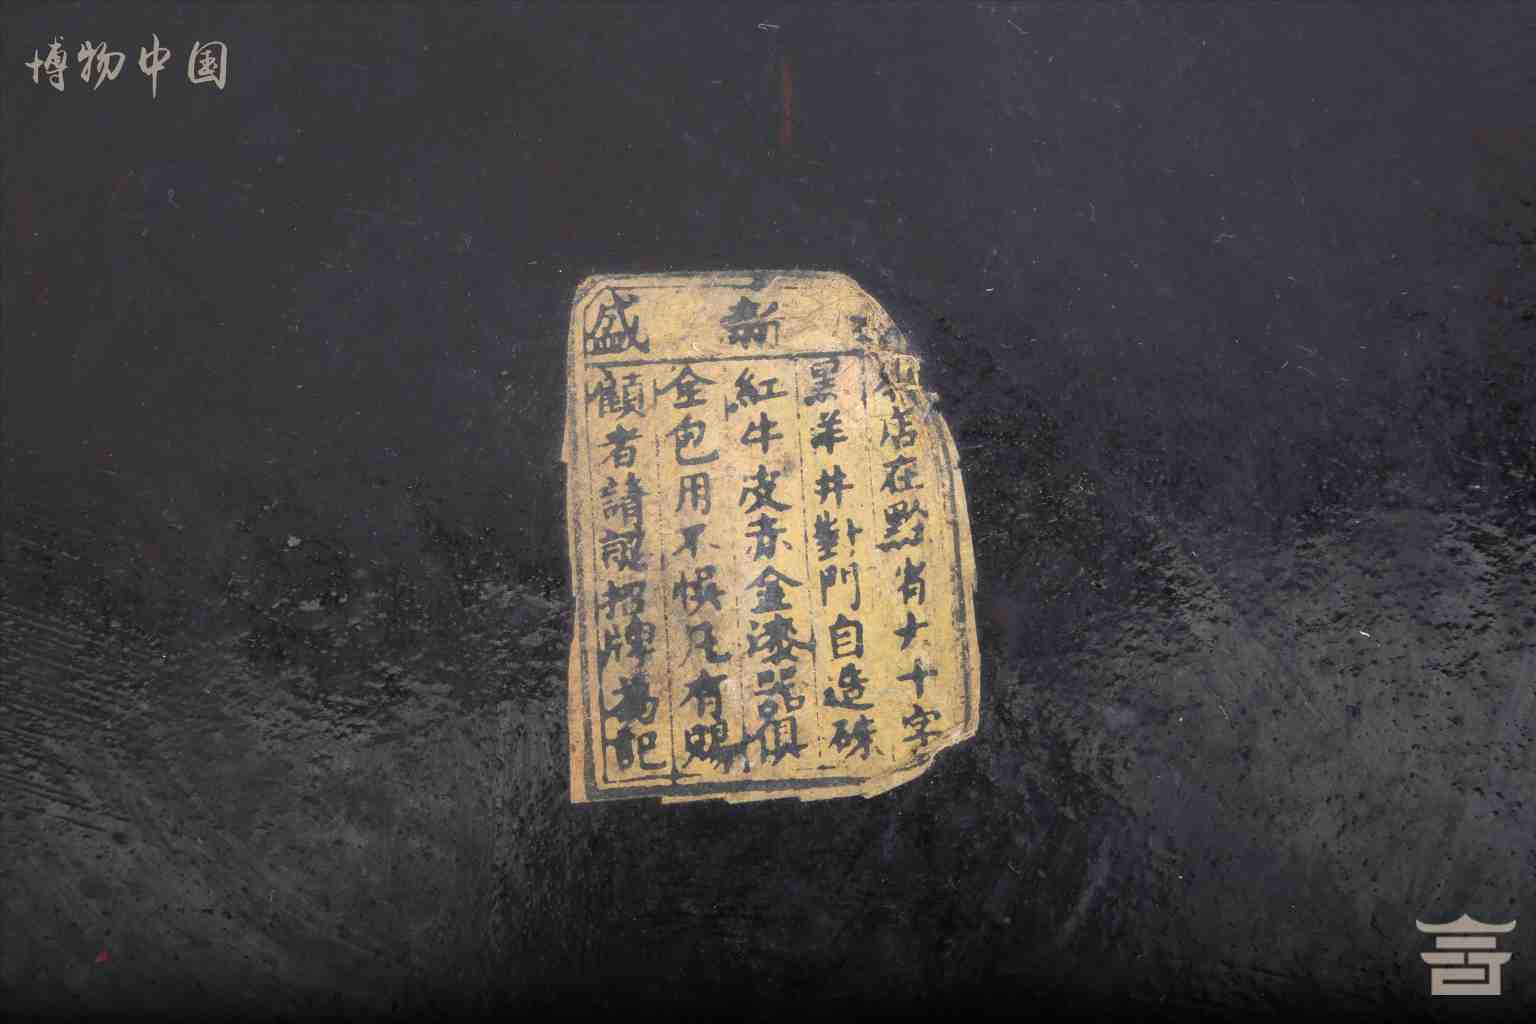 博物中国
新盛
本店在黔省大十字
黑羊井對門自造硃
紅牛皮赤金漆器俱
全包用不悞凡有賜
顧者請認招牌為記